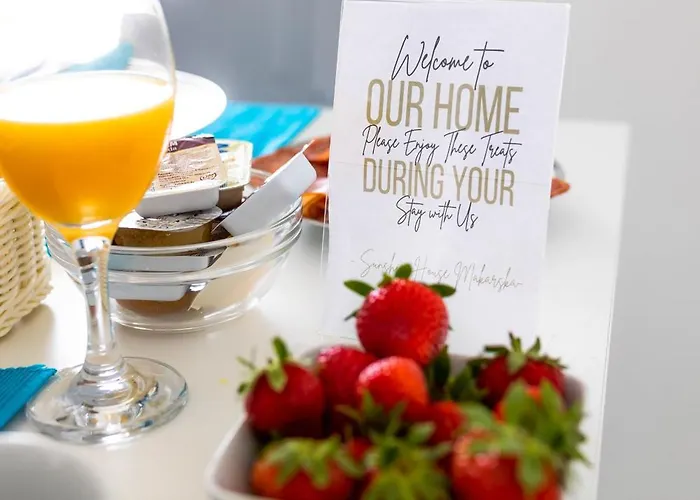 Welcome to
OUR HOME
Please Enjoy These Treats
DURING YOUR
Stay with Us
House Makarska